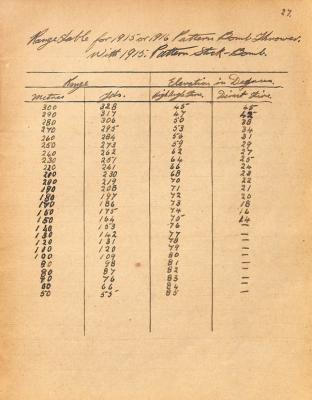 27.
Range table for 1915 or 1916 Pattern Bomb Thrower.
With 1915. Pattern Stick-Bomb.
Range Elevation in Degrees.
Metres Yds. High Angle Fire. Direct Fire.
300 328 45 45
290 317 47 42
280 306 50 38
270 295 53 34
260 284 56 31
250 273 59 29
240 262 62 27
230 251 64 25
220 241 66 24
210 230 68 23
200 219 70 22
190 208 71 21
180 197 72 20
170 186 73 18
160 175 74 16
150 164 75 14
140 153 76
130 142 77
120 131 78
110 120 79
100 109 80
90 98 81
80 87 82
70 76 83
60 66 84
50 55 85